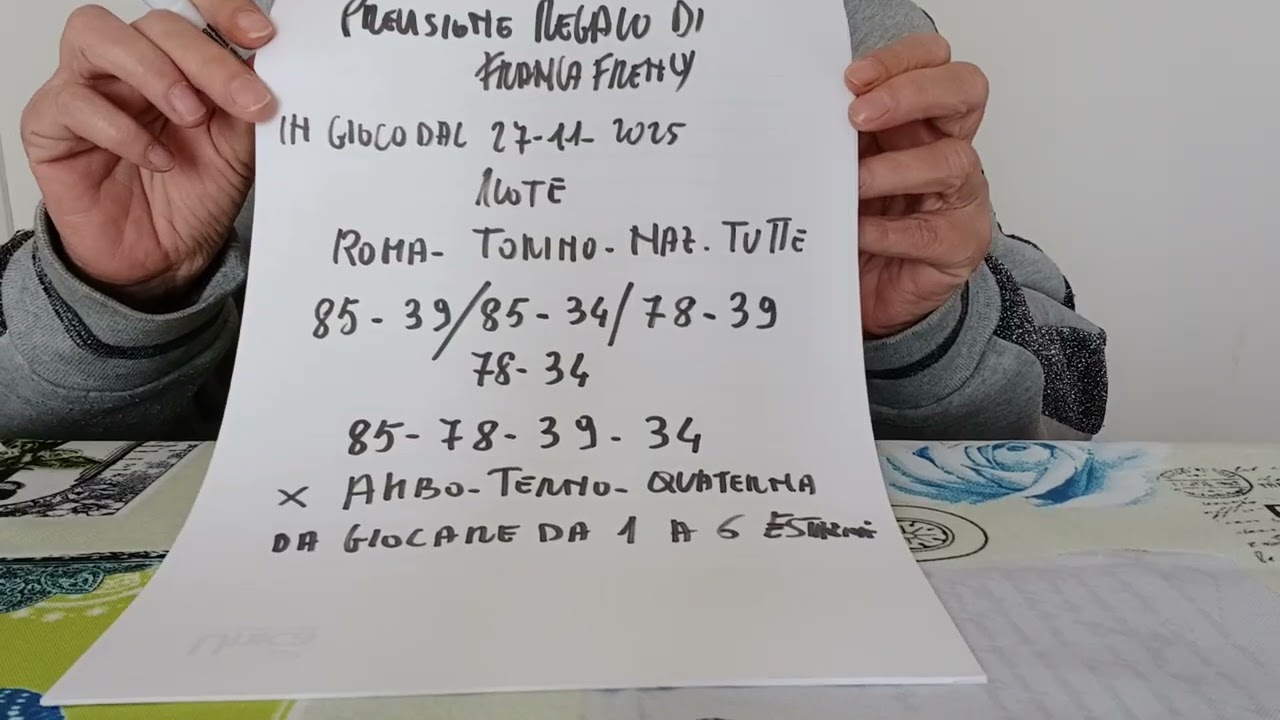 PREVISIONE REGALO DI
FRANCA FRENCY
IN GIOCO DAL 27-11-2025
RUOTE
ROMA- TORINO- NAZ. TUTTE
85-39/85-34/78-39
78-34
85-78-39-34
X AMBO-TERNO-QUATERNA
DA GIOCARE DA 1 A 6